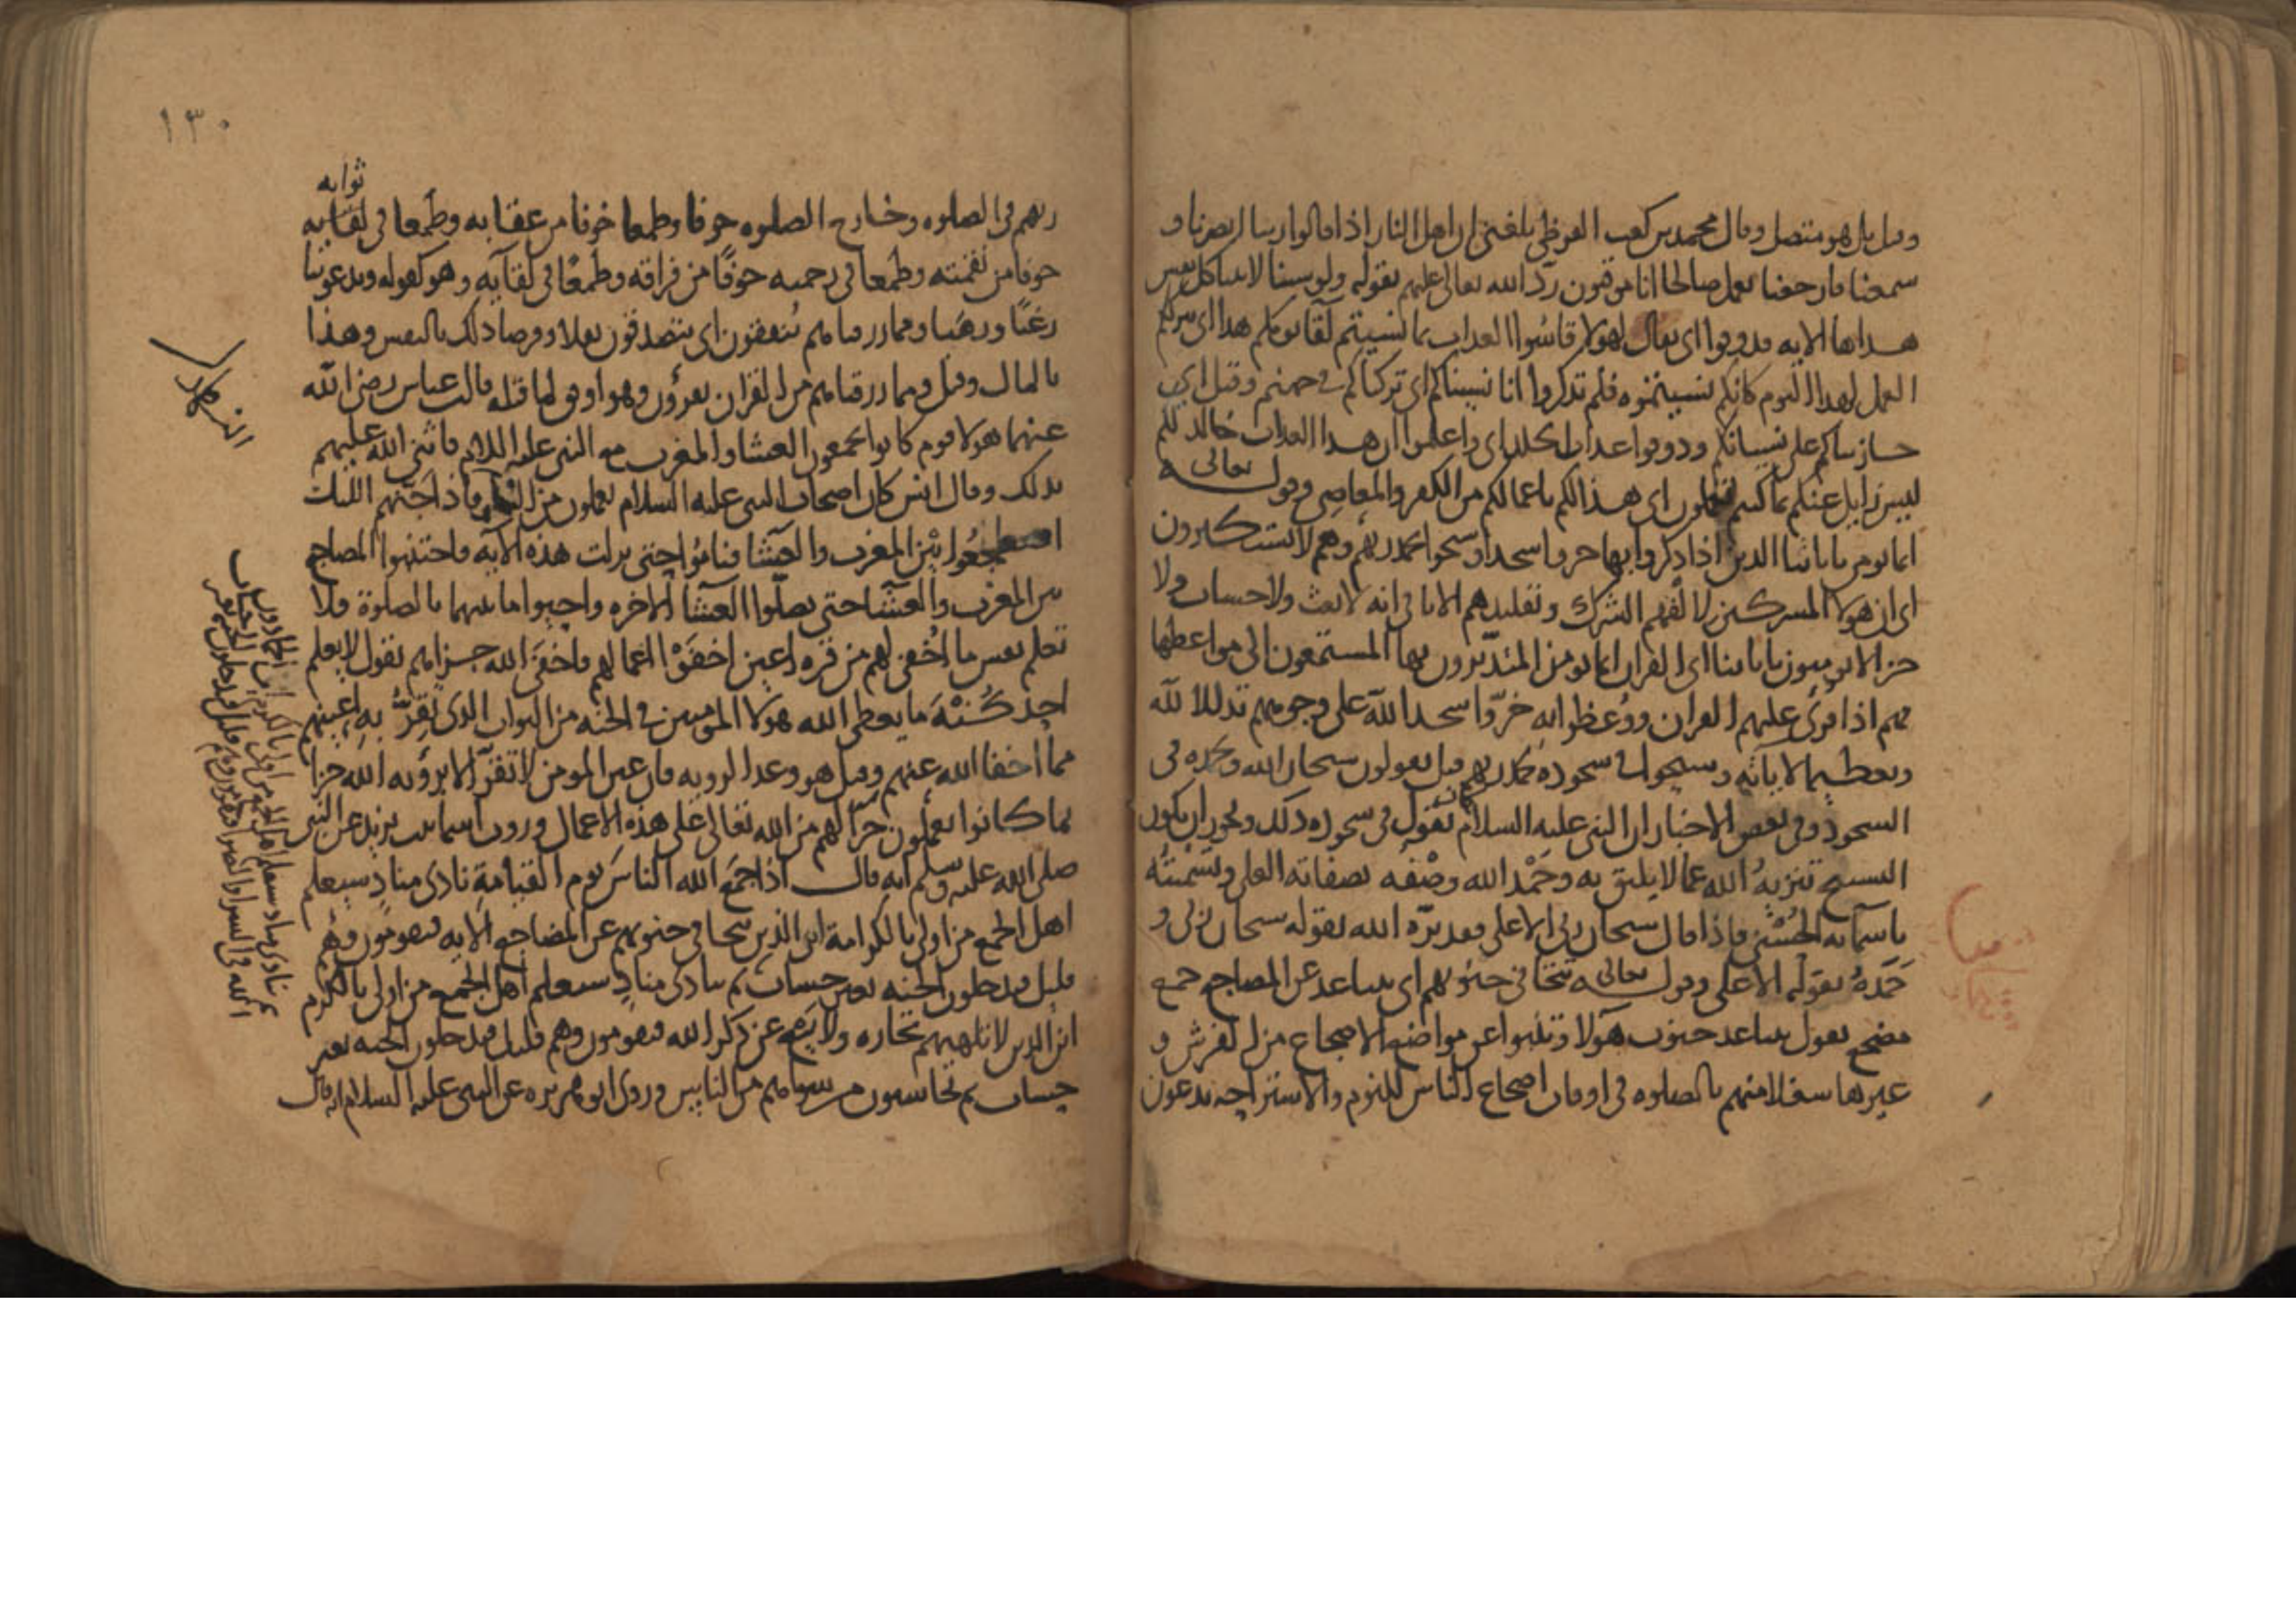 وقيل بل هو متصل وقال محمد بن كعب القرظي بلغني ان اهل النار اذا قالوا ربنا ابصرنا و
سمعنا فارجعنا نعمل صالحا انا موقنون ردّ الله تعالى عليهم بقوله ولو شينا لاتينا كل نفس
هداها الايه فذوقوا اي يقال لهولا قاسُوا العذاب بما نسيتم لقا يومكم هذا اي تركتم
العمل لهذا اليوم كانكم نسيتموه فلم تذكروا انا نسيناكم اي تركناكم في جهنم وقيل اي
جازيناكم على نسيانكم وذوقوا عذاب الخلد اي واعلموا ان هذا العذاب خالد لكم
ليس زايل عنكم بما كنتم تعملون اي هذا لكم باعمالكم من الكفر والمعاصي وقوله تعالى
انما يومن باياتنا الذين اذا ذكروا بها خروا سجدا وسبحوا بحمد ربهم وهم لا يستكبرون
اي ان هولا المشركين لالفهم الشرك وتقليدهم الابا في انه لا بعث ولا حساب ولا
جزا لا يومنون باياتنا اي القران انما يومن المتدبّرون بها المستمعون الى مواعظها
فهم اذا قرئ عليهم القران ووُعظوا به خرّوا سجدا لله على وجوههم تذللا لله
وتعظيما لاياته وسبحوا في سجوده بحمد ربهم قيل يقولون سبحان الله وبحمده في
السجود وفي بعض الاخبار ان النبي عليه السلام كان يقول في سجوده ذلك ويجوز ان يكون
التسبيح تنزيهُ الله عما لا يليق به وحَمْد الله وصْفه بصفاته العلى وتَسْميتُه
باسمايه الحُسْنى فاذا قال سبحان ربي الاعلى فقد نزّه الله بقوله سبحان ربي و
حَمَدهُ بقوله الاعلى وقوله تعالى تتجافى جنوبهم اي يتباعد عن المضاجع جمع
مضجع يقول يتباعد جنوب هولا وتنبوا عن مواضع الاضجاع من الفرش و
غيرها تنفلا منهم بالصلوه في اوقات اضجاع الناس للنوم والاستراحه يدعون
١٣٠
ثوابه
ربهم في الصلوه وخارج الصلوه خوفا وطمعا خوفا من عقابه وطمعا في لقايه
خوفا من نقمته وطمعا في رحمته خوفًا من فراقه وطمعًا في لقايه وهو كقوله ويدعوننا
رغبًا ورهبا ومما رزقناهم يُنفقون اي يتصدقون نفلا وفرضا ذلك بالنفس وهذا
بالمال وقيل ومما رزقناهم من القران يقرؤن وهو اوفق لما قبله قال ابن عباس رضي الله
عنهما هولا قوم كانوا يجمعون العشا والمغرب مع النبي عليه السلام فاثنى الله عليهم
بذلك وقال انس كان اصحاب النبي عليه السلام يعملون من فاذا جنّهم الليل
اضطجعُوا بين المغرب والعشا فناموا حتى نزلت هذه الايه فاجتنبوا المضاجع
بين المغرب والعشا حتى يصلّوا العشا الاخره واحيوا ما بينهما بالصلوة فلا
تعلم نفس ما اُخفي لهم من قره اعين اخفَوْا اعمالهم فاخفَى الله جزاهم يقول لا يعلم
احد كُنْهَ ما يعطي الله هولا المومنين في الجنه من الثواب الذي تَقِرُّ به اعينهم
مما اخفا الله عنهم وقيل هو وعد الرويه فان عين المومن لا تقرّ الا برؤيه الله جزا
بما كانوا يعملون جزآ لهم من الله تعالى على هذه الاعمال وروت اسما بنت يزيد عن النبي
صلى الله عليه وسلم انه قال اذا جمَع الله الناسَ يوم القيامةِ نادى منادٍ سيعلم
اهل الجمع من اولى بالكرامة اين الذين تتجافى جنوبهم عن المضاجع الايه فيقومون وهم
قليل فيدخلون الجنه بغير حساب ثم ينادي منادٍ سيعلم اهل الجمع من اولى بالكرم
اين الذين لا تلهيهم تجاره ولا بيع عن ذكر الله فيقومون وهم قليل فيدخلون الجنه بغير
حساب ثم يحاسبون من سواهم من الناس وروى ابو هريره عن النبي عليه السلام انه قال